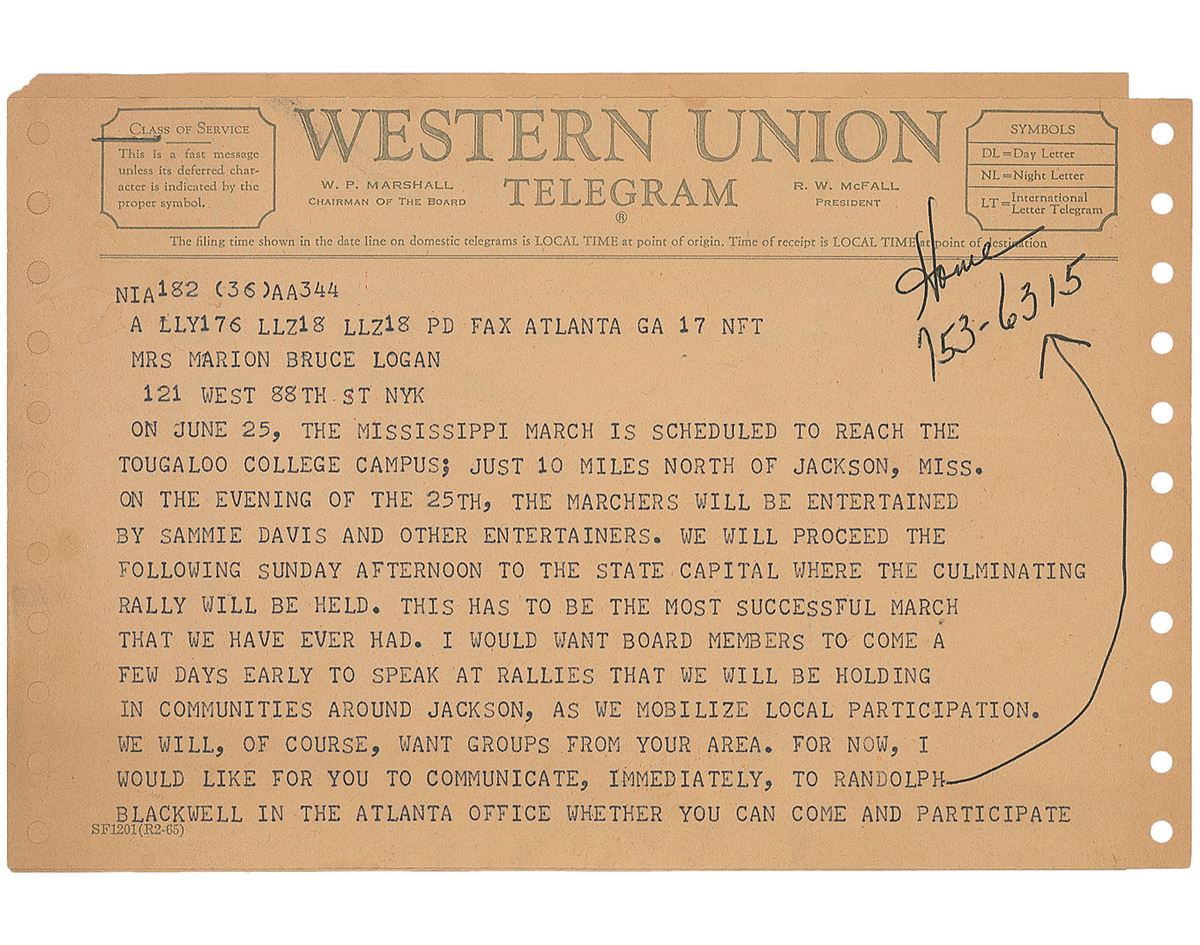 CLASS OF SERVICE
This is a fast message
unless its deferred char-
acter is indicated by the
proper symbol.
WESTERN UNION
TELEGRAM
®
W. P. MARSHALL
CHAIRMAN OF THE BOARD
R. W. McFALL
PRESIDENT
SYMBOLS
DL=Day Letter
NL=Night Letter
LT=International Letter Telegram
The filing time shown in the date line on domestic telegrams is LOCAL TIME at point of origin. Time of receipt is LOCAL TIME at point of destination
Home
753-6315
NIA182 (36)AA344
A LLY176 LLZ18 LLZ18 PD FAX ATLANTA GA 17 NFT
MRS MARION BRUCE LOGAN
121 WEST 88TH ST NYK
ON JUNE 25, THE MISSISSIPPI MARCH IS SCHEDULED TO REACH THE
TOUGALOO COLLEGE CAMPUS; JUST 10 MILES NORTH OF JACKSON, MISS.
ON THE EVENING OF THE 25TH, THE MARCHERS WILL BE ENTERTAINED
BY SAMMIE DAVIS AND OTHER ENTERTAINERS. WE WILL PROCEED THE
FOLLOWING SUNDAY AFTERNOON TO THE STATE CAPITAL WHERE THE CULMINATING
RALLY WILL BE HELD. THIS HAS TO BE THE MOST SUCCESSFUL MARCH
THAT WE HAVE EVER HAD. I WOULD WANT BOARD MEMBERS TO COME A
FEW DAYS EARLY TO SPEAK AT RALLIES THAT WE WILL BE HOLDING
IN COMMUNITIES AROUND JACKSON, AS WE MOBILIZE LOCAL PARTICIPATION.
WE WILL, OF COURSE, WANT GROUPS FROM YOUR AREA. FOR NOW, I
WOULD LIKE FOR YOU TO COMMUNICATE, IMMEDIATELY, TO RANDOLPH
BLACKWELL IN THE ATLANTA OFFICE WHETHER YOU CAN COME AND PARTICIPATE
SF1201(R2-65)